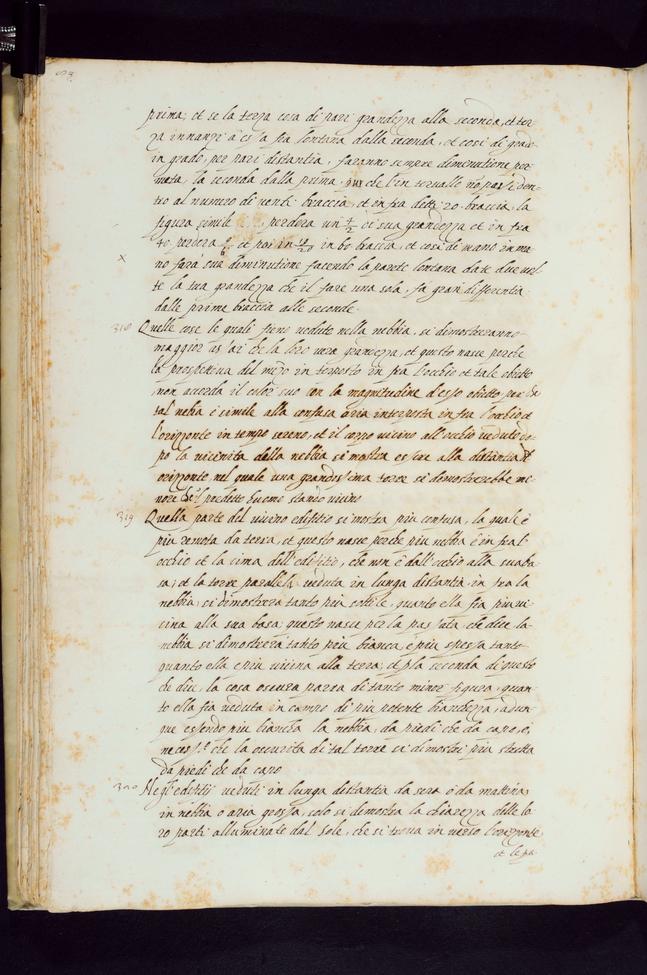 prima, et se la terza cosa di pari grandezza alla seconda, et ter-
za innanzi à essa sia lontana dalla seconda, et cosi di grado
in grado, per pari distantia, faranno sempre diminutione per-
mata, la seconda dalla prima, pur che l'intervallo no passi den-
tro al numero di venti braccia, et infra dette 20 braccia, la
figura simile perderà un di sua grandezza et in fra
40 perdera et poi in in 60 braccia, et cosi di mano in ma-
x
no farà sua diminutione facendo la parete lontana da te due vol-
te la tua grandezza che il fare una sola, fa gran differentia
dalle prime braccia alle seconde.
318 Quelle cose le quali fieno vedute nella nebbia, si dimostreranno
maggior assai che la loro vera grandezza, et questo nasce perche
la prospettiva del mezo interposto in fra l'occhio et tale obietto
non accorda il color suo con la magnitudine d'esso obietto, per che
tal nebia è simile alla confusa aria interposta in fra l'occhio et
l'orizzonte in tempo sereno, et il corpo vicino all'occhio veduto do-
po la vicinità della nebbia si mostra essere alla distantia de
orizzonte nel quale una grandissima torre si dimostrerebbe mi-
nore che il predetto huomo stando vicino
319 Quella parte del vicino edifitio si mostra più confusa, la quale è
più remota da terra, et questo nasce perche più nebbia è in fra l'
occhio et la cima dell'edifitio, che non è dall'occhio alla sua ba-
sa; et la torre parallela veduta in lunga distantia in fra la
nebbia, si dimostrerà tanto più sottile, quanto ella fia piu vi-
cina alla sua basa; questo nasce per la passata che dice la
nebbia si dimostrerà tanto più bianca, e più spessa tanto
quanto ella e più vicina alla terra; et p la seconda di questo
che dice, la cosa oscura parrà di tanto minor figura, quan-
to ella fia veduta in campo di più potente bianchezza, adun-
que essendo piu bianca la nebbia, da piedi che da capo, è
necess.o che la oscurità di tal torre si dimostri più stretta
da piedi che da capo
320 Negl'edifitii veduti in lunga distantia da sera ò da mattina
in nebbia ò aria grossa, solo si dimostra la chiarezza delle lo-
ro parti alluminate dal sole, che si trova in verso l'orizzonte
et le pa